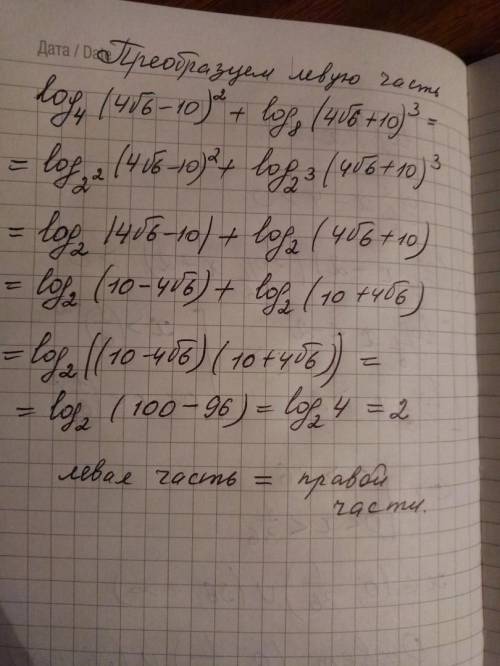 Дата / Da
Преобразуем левую часть
log₄ (4√6 − 10)² + log₈ (4√6 + 10)³ =
= log₂² (4√6 − 10)² + log₂³ (4√6 + 10)³
= log₂ |4√6 − 10| + log₂ (4√6 + 10)
= log₂ (10 − 4√6) + log₂ (10 + 4√6)
= log₂ ((10 − 4√6) (10 + 4√6)) =
= log₂ (100 − 96) = log₂ 4 = 2
левая часть = правой
части.